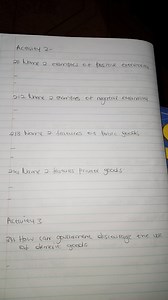 Activity 2:
2.1 Name 2 examples of positive externalities
2.2 Name 2 examples of negative externalities
2.3 Name 2 examples of basic goods
2.4 Name 2 private goods
Activity 3
3.1 How can government discourage the use
of demerit goods